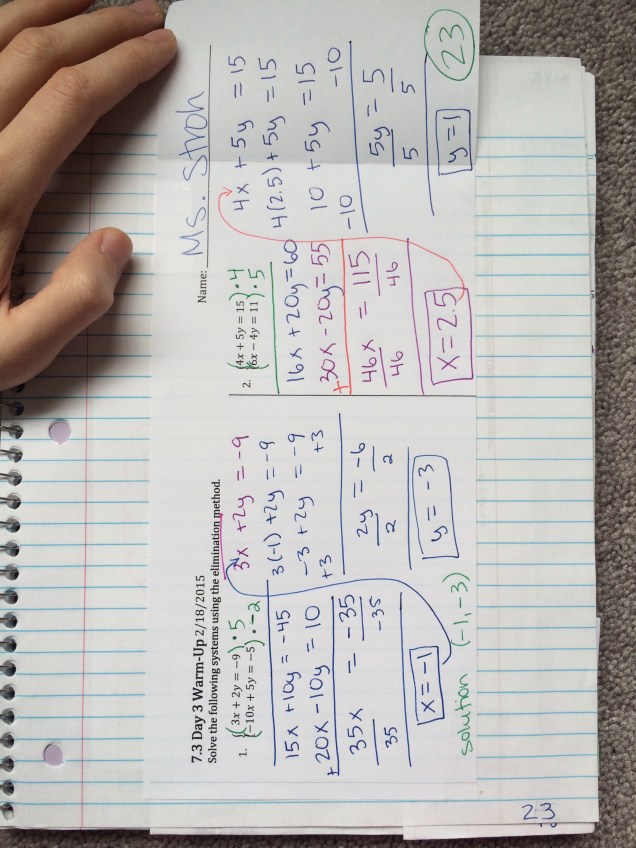 Name: Ms. Stroh
7.3 Day 3 Warm-Up 2/18/2015
Solve the following systems using the elimination method.
1. {(3x + 2y = -9) • 5
(-10x + 5y = -5) • -2
15x + 10y = -45
+20x - 10y = 10
35x = -35
35 -35
x = -1
3x + 2y = -9
3(-1) + 2y = -9
-3 + 2y = -9
+3 +3
2y = -6
2 2
y = -3
solution (-1, -3)
2. {4x + 5y = 15) • 4
6x - 4y = 11) • 5
16x + 20y = 60
+30x - 20y = 55
46x = 115
46 46
x = 2.5
4x + 5y = 15
4(2.5) + 5y = 15
10 + 5y = 15
-10 -10
5y = 5
5 5
y = 1
23
23